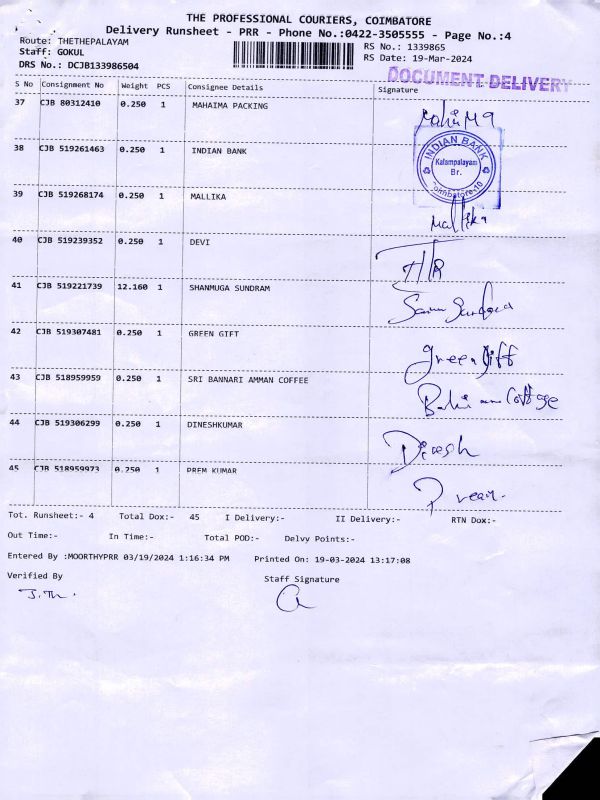 THE PROFESSIONAL COURIERS, COIMBATORE
Delivery Runsheet - PRR - Phone No.:0422-3505555 - Page No.:4
Route: THETHEPALAYAM
RS No.: 1339865
Staff: GOKUL
RS Date: 19-Mar-2024
DRS No.: DCJB133986504
DOCUMENT DELIVERY
S No Consignment No Weight PCS Consignee Details Signature
37 CJB 80312410 0.250 1 MAHAIMA PACKING
38 CJB 519261463 0.250 1 INDIAN BANK
INDIAN BANK
Kalampalayam
Br.
39 CJB 519268174 0.250 1 MALLIKA Mallika
40 CJB 519239352 0.250 1 DEVI
41 CJB 519221739 12.160 1 SHANMUGA SUNDRAM
42 CJB 519307481 0.250 1 GREEN GIFT Green Gift
43 CJB 518959959 0.250 1 SRI BANNARI AMMAN COFFEE
44 CJB 519306299 0.250 1 DINESHKUMAR Dinesh
45 CJB 518959973 0.250 1 PREM KUMAR
Tot. Runsheet:- 4 Total Dox:- 45 I Delivery:- II Delivery:- RTN Dox:-
Out Time:- In Time:- Total POD:- Delvy Points:-
Entered By :MOORTHYPRR 03/19/2024 1:16:34 PM Printed On: 19-03-2024 13:17:08
Verified By Staff Signature